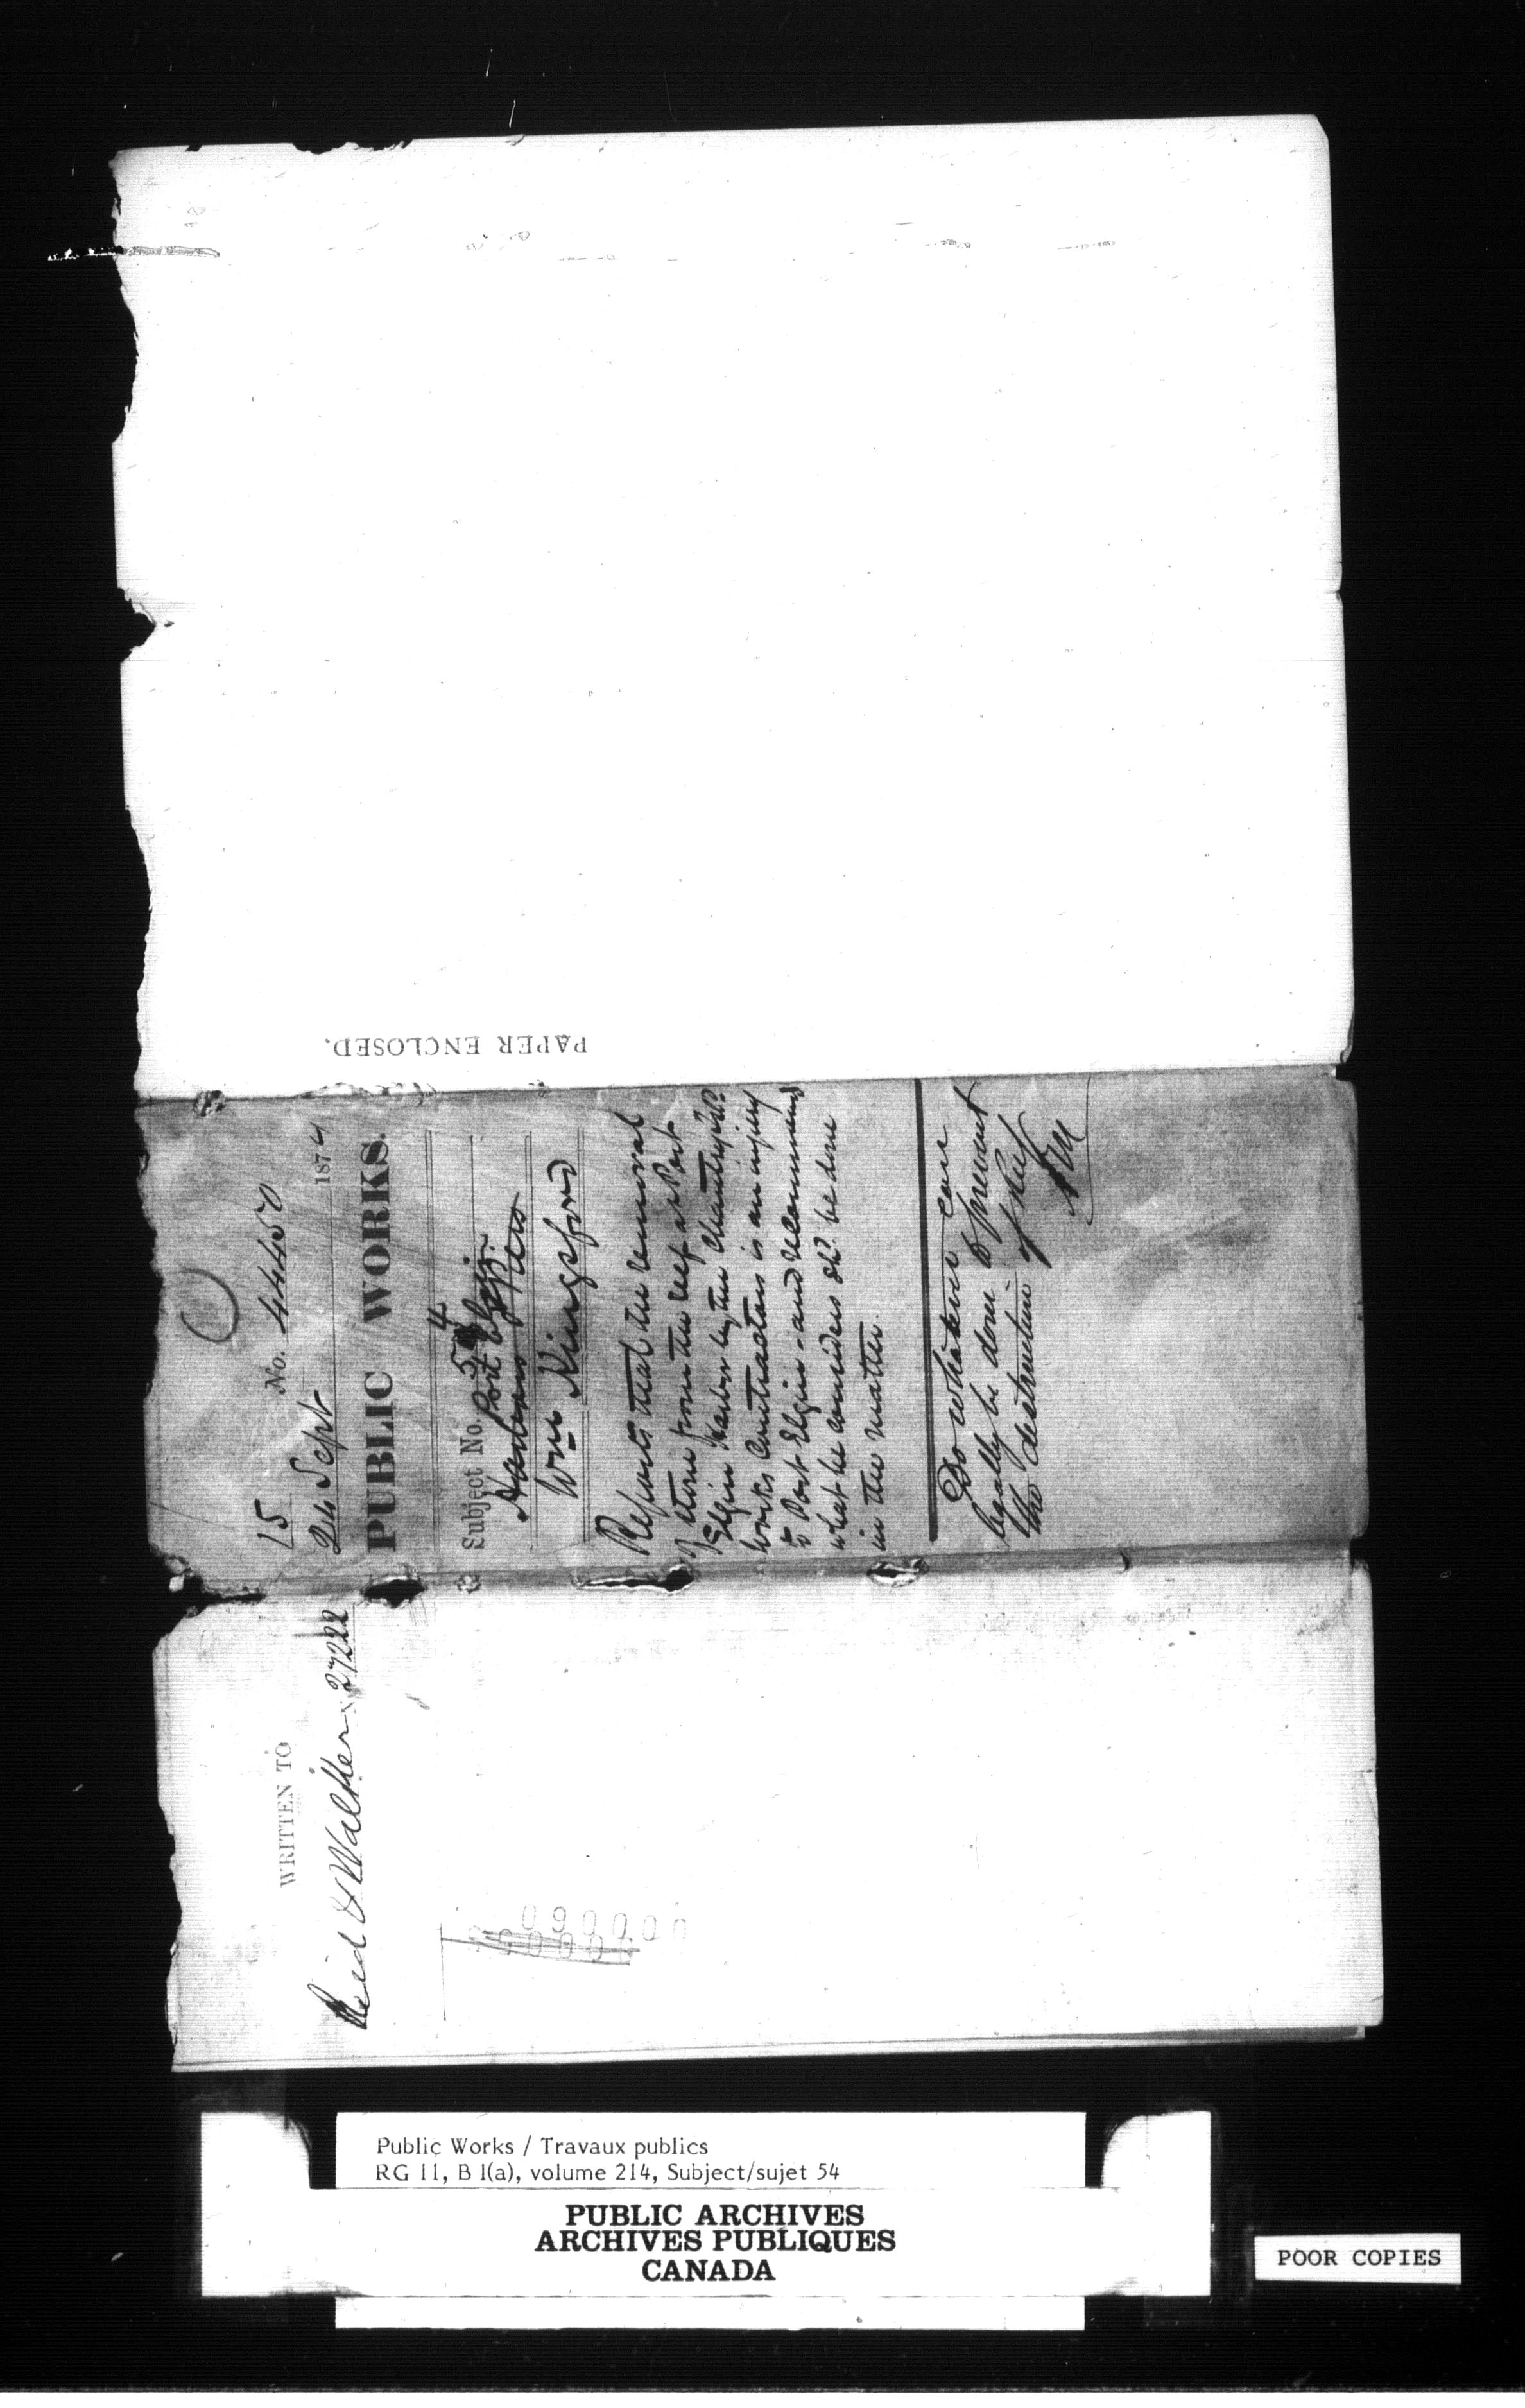 PAPER ENCLOSED.
15 No. 44450
24 Sept 1874
PUBLIC WORKS.
Subject No. 54
Port Elgin
Harbours & Piers
Wm Kingsford
Reports that the removal
of stone from the reef at Port
Elgin harbor by the Chantry Isld
works Contractors is an injury
to Port Elgin - and recommends
what he considers shd be done
in the matter.
Do whatever can
legally be done to prevent
the destruction of reef
WRITTEN TO
Reid & Walker 27222
090000
Public Works / Travaux publics
RG 11, B 1(a), volume 214, Subject/sujet 54
PUBLIC ARCHIVES
ARCHIVES PUBLIQUES
CANADA
POOR COPIES